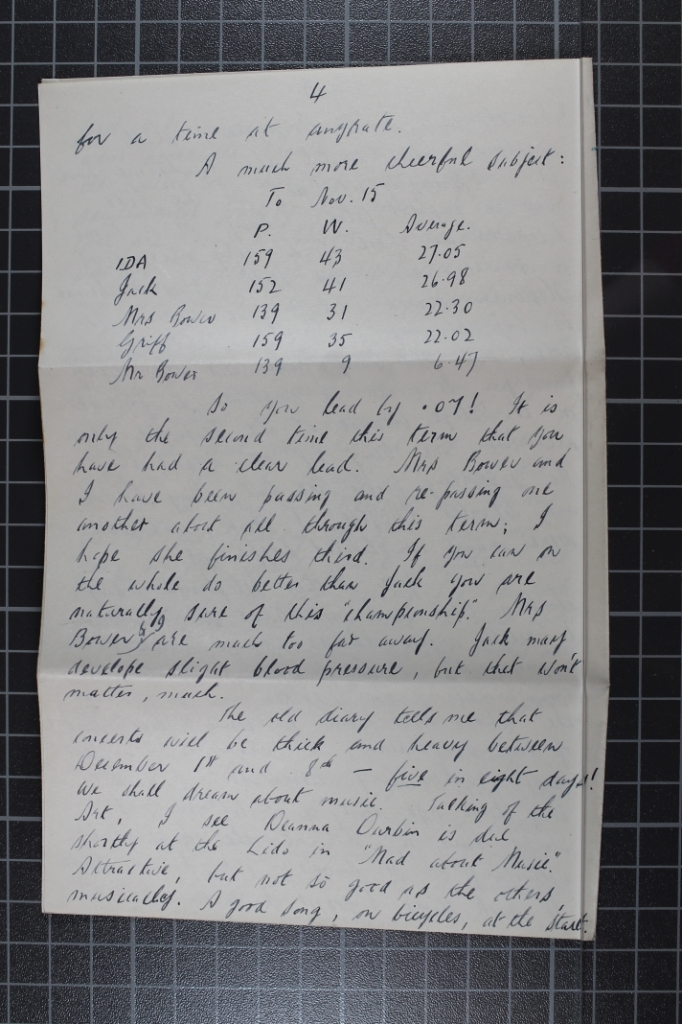 4
for a time at anyrate.
A much more cheerful subject:
To Nov. 15
P. W. Average.
IDA 159 43 27.05
Jack 152 41 26.98
Mrs Bower 139 31 22.30
Griff 159 35 22.02
Mr Bower 139 9 6.47
So you lead by .07! It is
only the second time this term that you
have had a clear lead. Mrs Bower and
I have been passing and re-passing one
another about all through this term; I
hope she finishes third. If you can on
the whole do better than Jack you are
naturally sure of this "championship". Mrs
Bower & g are much too far away. Jack may
develope slight blood pressure, but that won't
matter, much.
The old diary tells me that
concerts will be thick and heavy between
December 1st and 8th — five in eight days!
We shall dream about music. Talking of the
Art, I see Deanna Durbin is due
shortly at the Lido in "Mad about Music".
Attractive, but not so good as the others,
musically. A good song, on bicycles, at the start.